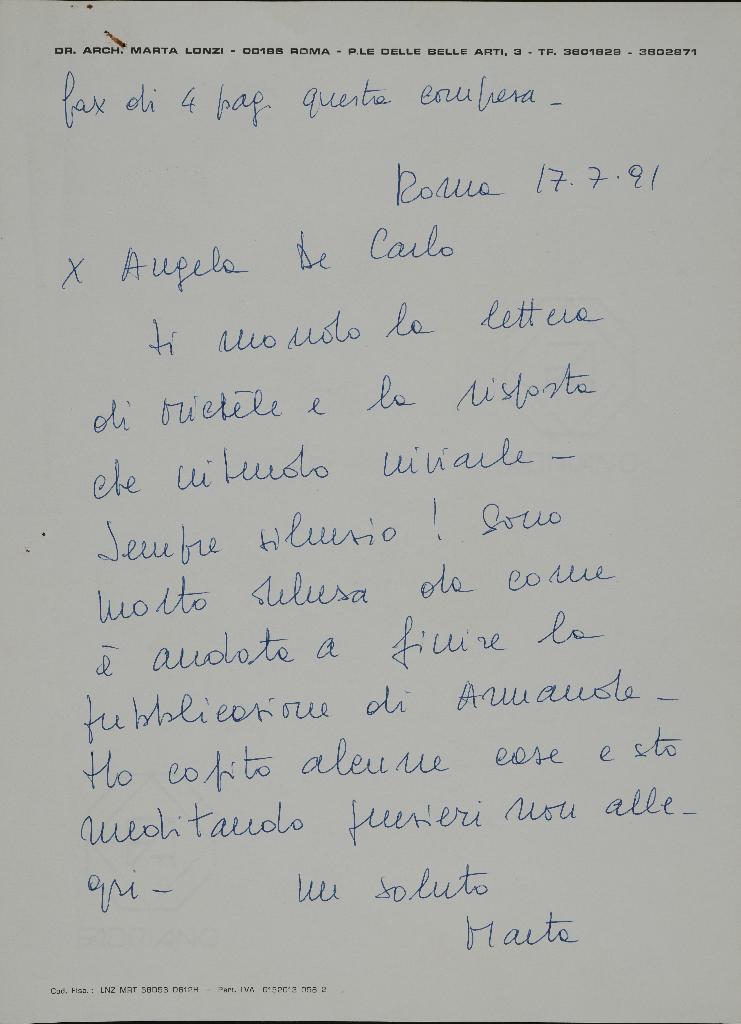 DR. ARCH. MARTA LONZI - 00196 ROMA - P.LE DELLE BELLE ARTI, 3 - TF. 3601829 - 3602871
fax di 4 pag. questa compresa -
Roma 17.7.91
x Angela De Carlo
ti mando la lettera
di Michèle e la risposta
che intendo inviarle -
Sempre silenzio! Sono
molto delusa da come
è andata a finire la
pubblicazione di Armande -
Ho capito alcune cose e sto
meditando pensieri non alle-
gri - un saluto
Marta
Cod. Fisc.: LNZ MRT 38D53 D612H - Part. IVA